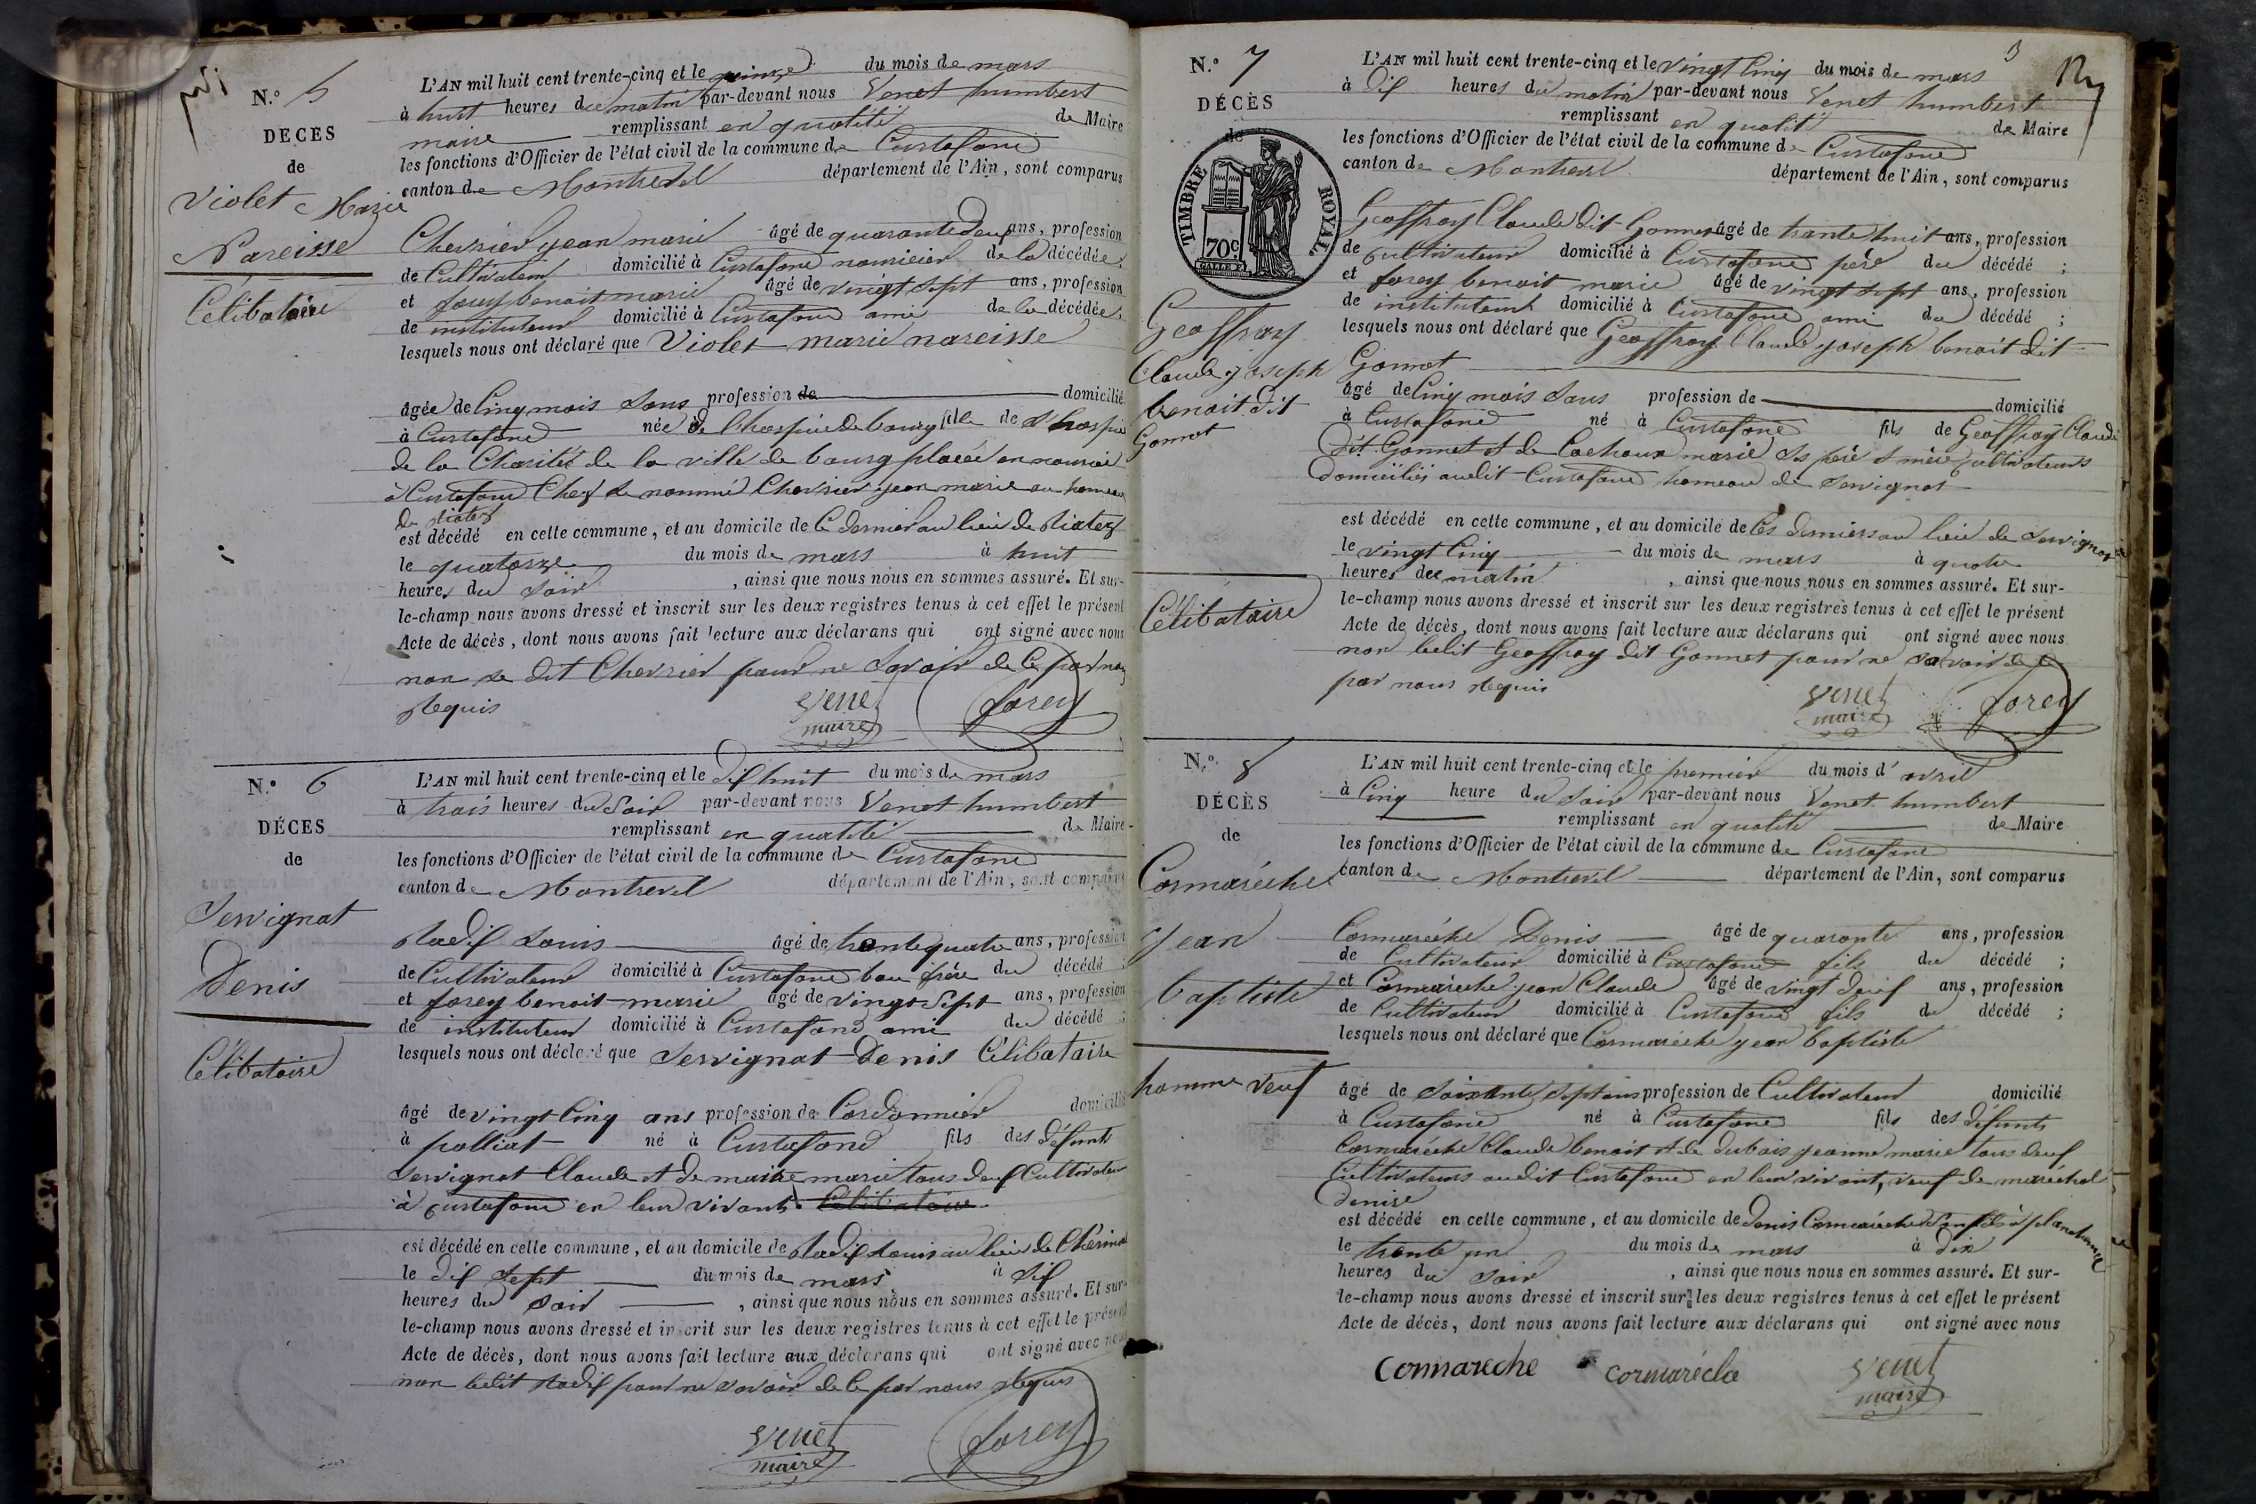 N.° 5
DÉCES
de
Violet Marie
Narcisse
Célibataire
L'AN mil huit cent trente-cinq et le quinze du mois de mars
à huit heures du matin par-devant nous Venet humbert
maire remplissant en qualité de Maire
les fonctions d'Officier de l'état civil de la commune de Curtafond
canton de Montrevel département de l'Ain, sont comparus
Chevrier jean marie âgé de quarante deux ans, profession
de Cultivateur domicilié à Curtafond nourricier de la décédée;
et forey benoit marie âgé de vingt sept ans, profession
de instituteur domicilié à Curtafond ami de la décédée;
lesquels nous ont déclaré que Violet marie narcisse
âgée de Cinq mois Sans profession de domicilié
à Curtafond née de l'hospice de bourg fille de l'hospice
de la Charité de la ville de bourg placée en nourrice
à Curtafond Chez le nommé Chevrier jean marie au hameau
de
est décédé en cette commune, et au domicile de Ce dernier au lieu de
le quatorze du mois de mars à huit
heures du Soir, ainsi que nous nous en sommes assuré. Et sur-
le-champ nous avons dressé et inscrit sur les deux registres tenus à cet effet le présent
Acte de décès, dont nous avons fait lecture aux déclarans qui ont signé avec nous
non le dit Chevrier pour ne Savoir de Ce par nous
Requis
Venet
maire
forey
N.° 6
DÉCES
de
Servignat
Denis
Célibataire
L'AN mil huit cent trente-cinq et le Dix huit du mois de mars
à trois heures du Soir par-devant nous Venet humbert
remplissant en qualité de Maire
les fonctions d'Officier de l'état civil de la commune de Curtafond
canton de Montrevel département de l'Ain, sont comparus
Radix Louis âgé de trente quatre ans, profession
de Cultivateur domicilié à Curtafond beau frère du décédé;
et forey benoit marie âgé de vingt Sept ans, profession
de instituteur domicilié à Curtafond ami du décédé;
lesquels nous ont déclaré que Servignat Denis Célibataire
âgé de vingt Cinq ans profession de Cordonnier domicilié
à polliat né à Curtafond fils des défunts
Servignat Claude et de maitre marie tous deux Cultivateurs
à Curtafond en leur vivants Célibataire
est décédé en cette commune, et au domicile de Radix Louis au lieu de
le dix Sept du mois de mars à Six
heures du Soir, ainsi que nous nous en sommes assuré. Et sur-
le-champ nous avons dressé et inscrit sur les deux registres tenus à cet effet le présent
Acte de décès, dont nous avons fait lecture aux déclarans qui ont signé avec nous
non ledit Radix pour ne savoir de Ce par nous Requis
Venet
maire
forey
3
N.° 7
DÉCÈS
de
TIMBRE ROYAL
70 c
Geoffray
Claude joseph
benoit dit
Gonnet
Célibataire
L'AN mil huit cent trente-cinq et le vingt Cinq du mois de mars
à dix heures du matin par-devant nous Venet humbert
remplissant en qualité de Maire
les fonctions d'Officier de l'état civil de la commune de Curtafond
canton de Montrevel département de l'Ain, sont comparus
Geoffray Claude dit Gonnet âgé de trente huit ans, profession
de cultivateur domicilié à Curtafond père du décédé;
et forey benoit marie âgé de vingt sept ans, profession
de instituteur domicilié à Curtafond ami du décédé;
lesquels nous ont déclaré que Geoffray Claude joseph benoit dit
Gonnet
âgé de Cinq mois Sans profession de domicilié
à Curtafond né à Curtafond fils de Geoffray Claude
Dit Gonnet et de Cochoux marie Ses père et mère cultivateurs
Domiciliés audit Curtafond hameau de Servignat
est décédé en cette commune, et au domicile de Ces derniers au lieu de Servignat
le vingt Cinq du mois de mars à quatre
heures du matin, ainsi que nous nous en sommes assuré. Et sur-
le-champ nous avons dressé et inscrit sur les deux registres tenus à cet effet le présent
Acte de décès, dont nous avons fait lecture aux déclarans qui ont signé avec nous
non ledit Geoffray dit Gonnet pour ne savoir de Ce
par nous Requis
Venet
maire
forey
N.° 8
DÉCÈS
de
Cormaréche
jean
baptiste
homme veuf
L'AN mil huit cent trente-cinq et le premier du mois d'avril
à Cinq heure du Soir par-devant nous Venet humbert
remplissant en qualité de Maire
les fonctions d'Officier de l'état civil de la commune de Curtafond
canton de Montrevel département de l'Ain, sont comparus
Cormaréche Denis âgé de quarante ans, profession
de Cultivateur domicilié à Curtafond fils du décédé;
et Cormaréche jean Claude âgé de vingt deux ans, profession
de Cultivateur domicilié à Curtafond fils du décédé;
lesquels nous ont déclaré que Cormaréche jean baptiste
âgé de Soixante Sept ans profession de Cultivateur domicilié
à Curtafond né à Curtafond fils des défunts
Cormaréche Claude benoit et de dubois jeanne marie tous deux
Cultivateurs audit Curtafond en leur vivant, veuf de maréchal
denise
est décédé en cette commune, et au domicile de denis Cormaréche Son fils à
le trente un du mois de mars à dix
heures du Soir, ainsi que nous nous en sommes assuré. Et sur-
le-champ nous avons dressé et inscrit sur les deux registres tenus à cet effet le présent
Acte de décès, dont nous avons fait lecture aux déclarans qui ont signé avec nous
Cormareche cormaréche Venet
maire